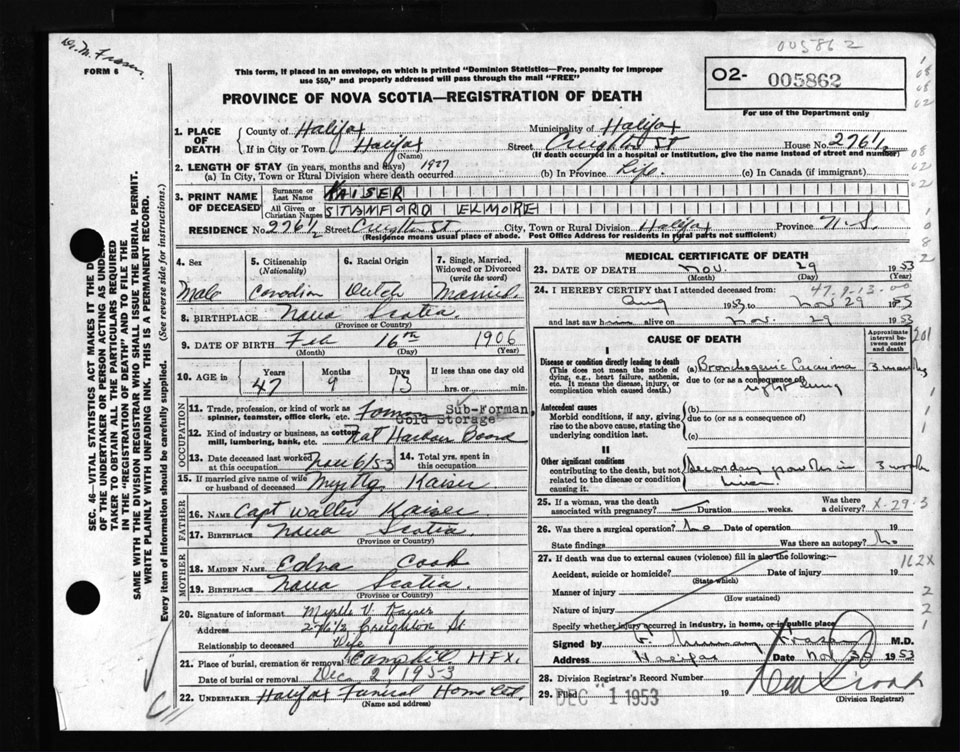 005862
Dr. M. Fraser.
FORM 6
This form, if placed in an envelope, on which is printed "Dominion Statistics—Free, penalty for improper
use $50," and properly addressed will pass through the mail "FREE"
O2- 005862
For use of the Department only
PROVINCE OF NOVA SCOTIA—REGISTRATION OF DEATH
1. PLACE OF DEATH
County of Halifax Municipality of Halifax
If in City or Town Halifax Street Creighton St House No. 276½
(Name) (If death occurred in a hospital or institution, give the name instead of street and number)
2. LENGTH OF STAY (in years, months and days) 1927
(a) In City, Town or Rural Division where death occurred (b) In Province Life. (c) In Canada (if immigrant)
3. PRINT NAME OF DECEASED
Surname or Last Name KAISER
All Given or Christian Names STAMFORD ELMORE
RESIDENCE No. 276½ Street Creighton St. City, Town or Rural Division Halifax Province N.S.
(Residence means usual place of abode. Post Office Address for residents in rural parts not sufficient)
SEC. 46—VITAL STATISTICS ACT MAKES IT THE D
OF THE UNDERTAKER OR PERSON ACTING AS UNDER-
TAKER TO OBTAIN ALL THE PARTICULARS REQUIRED
IN THE "REGISTRATION OF DEATH" AND TO FILE THE
SAME WITH THE DIVISION REGISTRAR WHO SHALL ISSUE THE BURIAL PERMIT.
WRITE PLAINLY WITH UNFADING INK. THIS IS A PERMANENT RECORD.
Every item of information should be carefully supplied. (See reverse side for instructions.)
4. Sex
Male
5. Citizenship (Nationality)
Canadian
6. Racial Origin
Dutch
7. Single, Married, Widowed or Divorced (write the word)
Married.
8. BIRTHPLACE Nova Scotia.
(Province or Country)
9. DATE OF BIRTH Feb 16th 1906
(Month) (Day) (Year)
10. AGE in Years Months Days If less than one day old
47 9 13 hrs. or min.
OCCUPATION
11. Trade, profession, or kind of work as spinner, teamster, office clerk, etc. Sub-Forman,
Cold Storage
12. Kind of industry or business, as cotton mill, lumbering, bank, etc. Nat Harbour Board
13. Date deceased last worked at this occupation Nov 6/53
14. Total yrs. spent in this occupation
15. If married give name of wife or husband of deceased Myrtle Kaiser
FATHER
16. NAME Capt Walter Kaiser
17. BIRTHPLACE Nova Scotia.
(Province or Country)
MOTHER
18. MAIDEN NAME Edna Cook
19. BIRTHPLACE Nova Scotia.
(Province or Country)
20. Signature of informant Myrtle V. Kaiser
Address 276½ Creighton St
Relationship to deceased Wife
21. Place of burial, cremation or removal HFX.
Date of burial or removal Dec 2 1953
22. UNDERTAKER Halifax Funeral Home Ltd.
(Name and address)
MEDICAL CERTIFICATE OF DEATH
23. DATE OF DEATH Nov. 29 1953
(Month) (Day) (Year)
47-9-13-00
24. I HEREBY CERTIFY that I attended deceased from:
Aug 1953 to Nov 29 1953
and last saw him alive on Nov. 29 1953
CAUSE OF DEATH
Approximate interval between onset and death
I
Disease or condition directly leading to death
(This does not mean the mode of dying, e.g., heart failure, asthenia, etc. It means the disease, injury, or complication which caused death.)
(a) Bronchogenic Carcinoma 3 months
due to (or as a consequence of)
right lung
Antecedent causes
Morbid conditions, if any, giving rise to the above cause, stating the underlying condition last.
(b)
due to (or as a consequence of)
(c)
II
Other significant conditions
contributing to the death, but not related to the disease or condition causing it.
Secondary growths in 3 weeks
liver
25. If a woman, was the death associated with pregnancy? Duration weeks. Was there a delivery?
X-29.3
26. Was there a surgical operation? No Date of operation 19
State findings Was there an autopsy? No
27. If death was due to external causes (violence) fill in also the following:—
Accident, suicide or homicide? Date of injury 19
(State which)
162X
Manner of injury
(How sustained)
Nature of injury
Specify whether injury occurred in industry, in home, or in public place
Signed by F. Murray Fraser M.D.
Address Halifax Date Nov 30 1953
28. Division Registrar's Record Number
29. Filed DEC -1 1953 19
(Division Registrar)